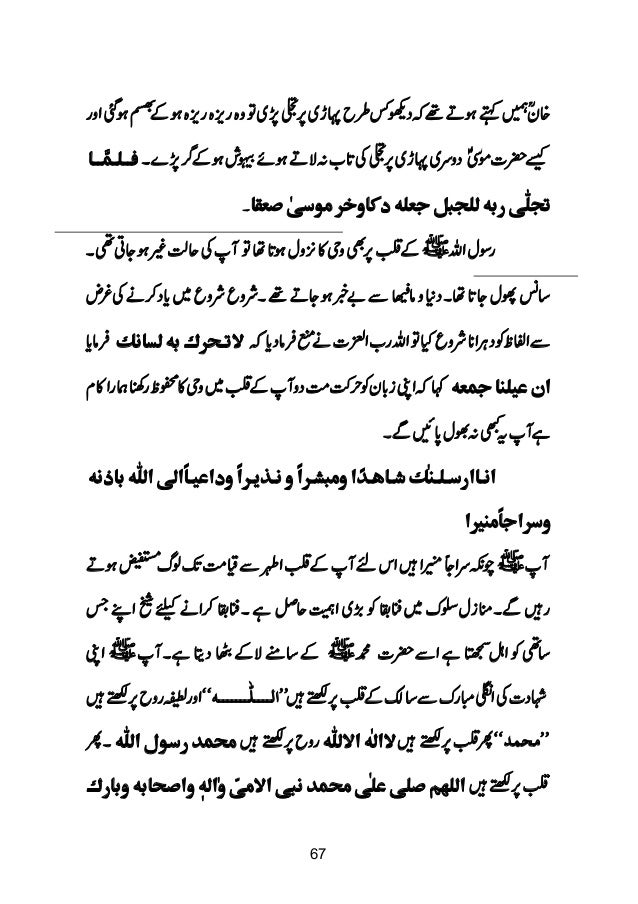 خانؒ ہمیں کہتے ہوتے تھے کہ دیکھو کس طرح پہاڑی پر تجلّی پڑی تو وہ ریزہ ریزہ ہو کے بھسم ہوگئی اور
کیسے حضرت موسیٰؑ دوسری پہاڑی پر تجلّی کی تاب نہ لاتے ہوئے بیہوش ہو کے گر پڑے۔ فـلـمَّـا
تجلّٰی ربه للجبل جعله دکاوخر موسیٰ صعقا۔
رسول اللہ ﷺ کے قلب پر بھی وحی کا نزول ہوتا تھا تو آپ کی حالت غیر ہو جاتی تھی۔
سانس پھول جاتا تھا۔ دنیا و مافیہا سے بے خبر ہو جاتے تھے۔ شروع شروع میں یاد کرنے کی غرض
سے الفاظ کو دہرانا شروع کیا تو اللہ رب العزت نے منع فرما دیا کہ لاتـحرك به لسانك فرمایا
ان عیلنا جمعه کہا کہ اپنی زبان کو حرکت مت دو آپ کے قلب میں وحی کا محفوظ رکھنا ہمارا کام
ہے آپ یہ کبھی نہ بھول پائیں گے۔
انـاارسـلـنٰك شـاهـدًا ومبشـراً و نـذیـراً وداعیـاًالی الله باذنه
وسراجاًمنیرا
آپ ﷺ چونکہ سراجاً منیرا ہیں اس لئے آپ کے قلب اطہر سے قیامت تک لوگ مستفیض ہوتے
رہیں گے۔ منازل سلوک میں فنابقا کو بڑی اہمیت حاصل ہے ۔ فنابقا کرانے کیلئے شیخ اپنے جس
ساتھی کو اہل سمجھتا ہے اسے حضرت محمد ﷺ کے سامنے لا کے بٹھا دیتا ہے۔ آپ ﷺ اپنی
شہادت کی انگلی مبارک سے سالک کے قلب پر لکھتے ہیں ’’الـــلّـــــــه‘‘ اور لطیفہ روح پر لکھتے ہیں
’’محمد‘‘ پھر قلب پر لکھتے ہیں لاالٰه الاالله روح پر لکھتے ہیں محمد رسول الله ۔ پھر
قلب پر لکھتے ہیں اللهم صلی علٰی محمد نبی الامیّ واٰلهٖ واصحابه وبارك
67